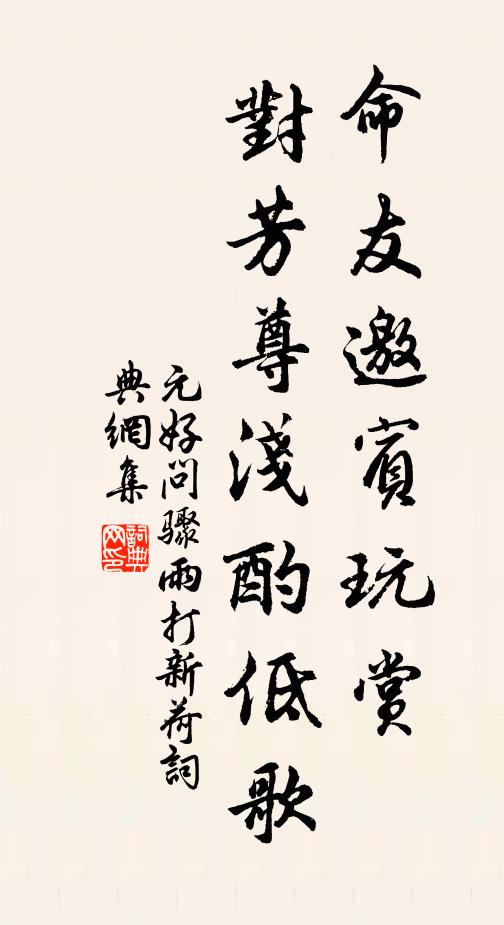 命友邀賓玩賞
對芳尊淺酌低歌
元好問驟雨打新荷詞
典網集
詞典
网印